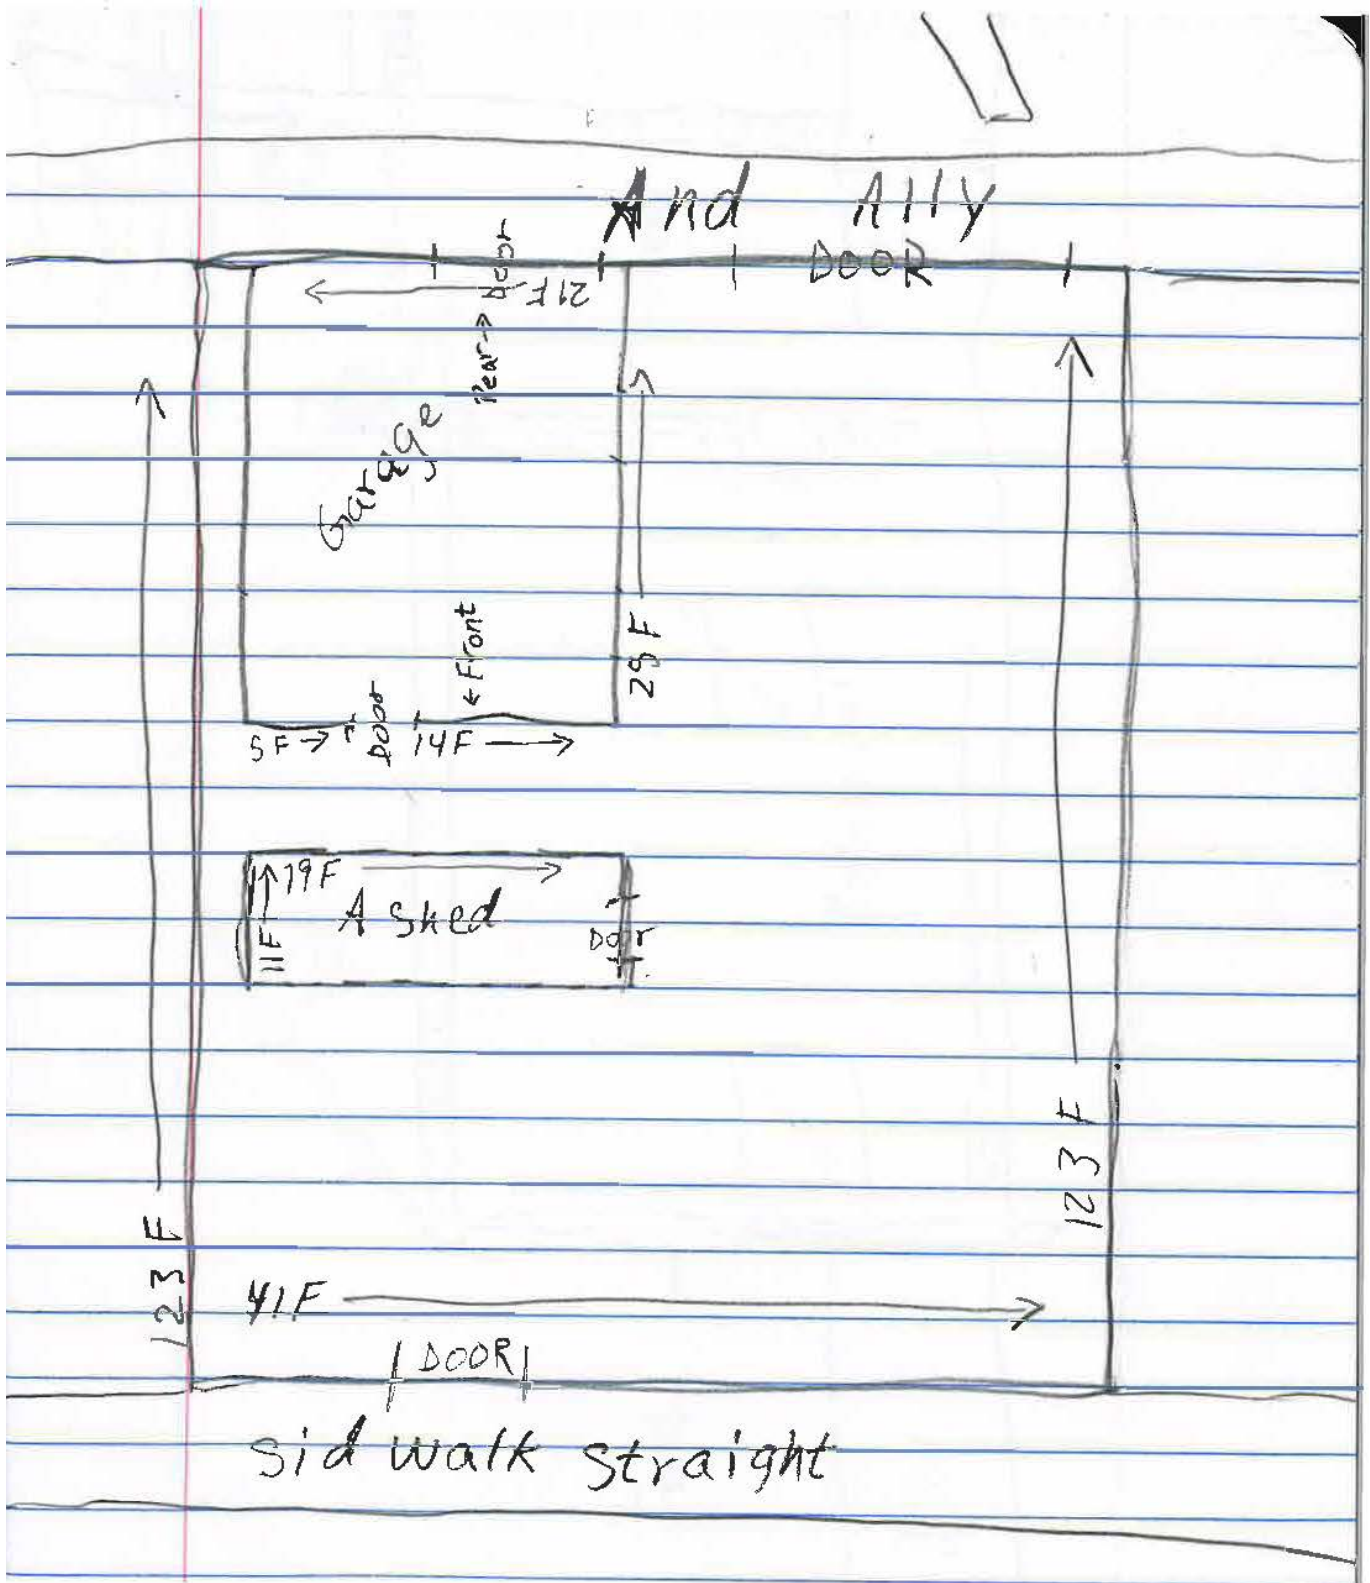 And Ally
Door
DOOR
21F
Rear →
Garage
← Front
28 F
5F →
Door
14F →
19F
11F
A Shed
Door
123 F
123 F
41F
DOOR
sid walk straight